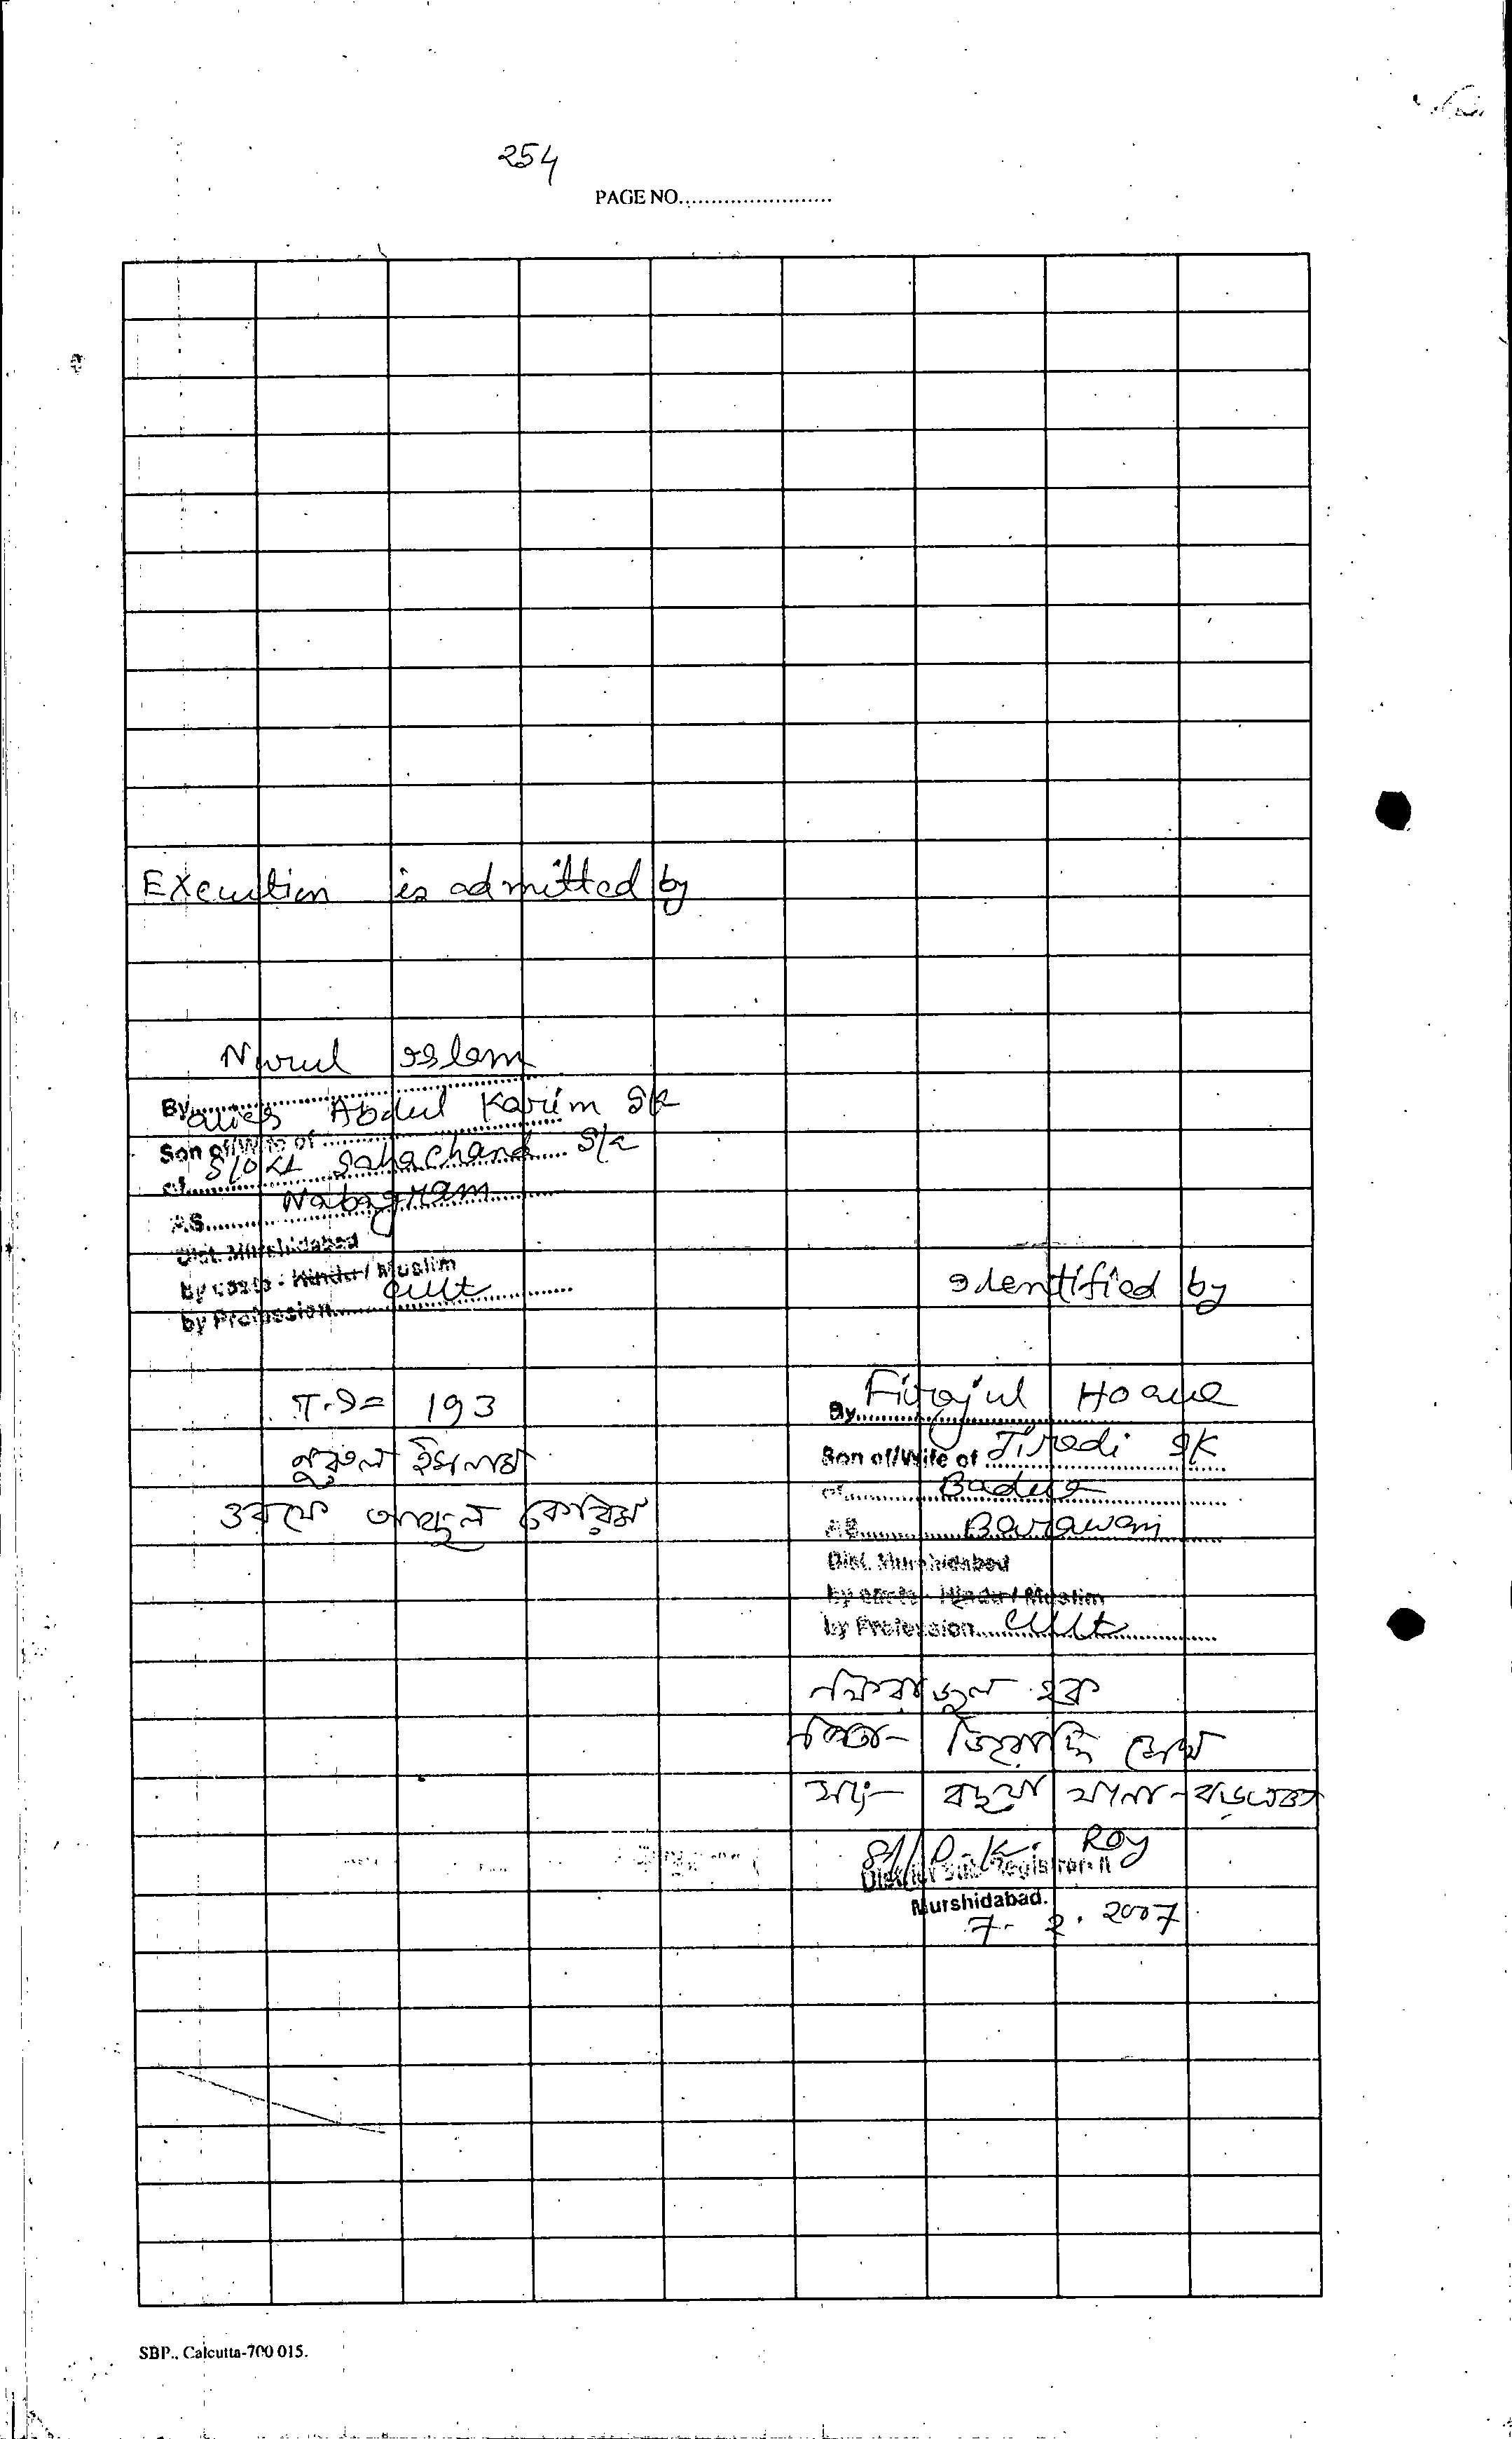 254
PAGE NO........................
Execution is admitted by
Nurul Islam
By
alies Abdul Karim Sk
Son of/Wife of
S/o Lt Sahachand Sk
of
Nabagram
P.S.
Dist. Murshidabad
by caste - Hindu / Muslim
by Profession Cult
193
নুরুল ইসলাম
ওরফে আব্দুল কোরিম
Identified by
By Firajul Hoque
Son of/Wife of Jiradi Sk
of Badua
P.S. Barawan
Dist. Murshidabad
by caste - Hindu / Muslim
by Profession Cult
ফিরাজুল হক
পিতা- জিরাদ্দি সেখ
সাং- বদুয়া থানা-
Sd/ D. K. Roy
District Sub Registrar-II
Murshidabad.
7. 2. 2007
SBP., Calcutta-700 015.